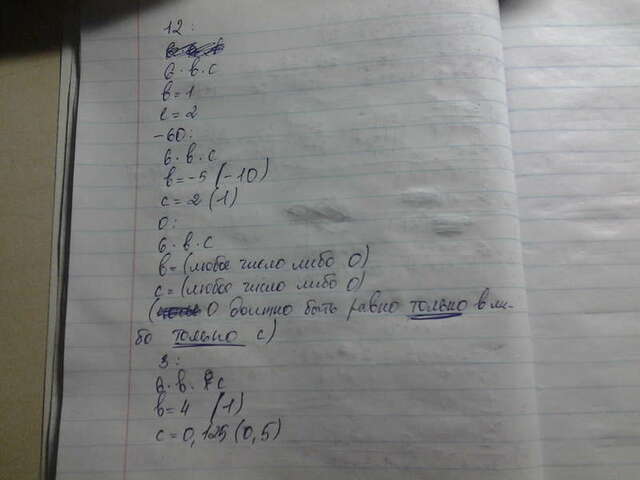 12:
6·в·с
в=1
с=2
-60:
6·в·с
в=-5 (-10)
с=2 (1)
0:
6·в·с
в=(любое число либо 0)
с=(любое число либо 0)
( 0 должно быть равно только в ли-
бо только с)
3:
6·в·с
в=4 (1)
с=0,125 (0,5)